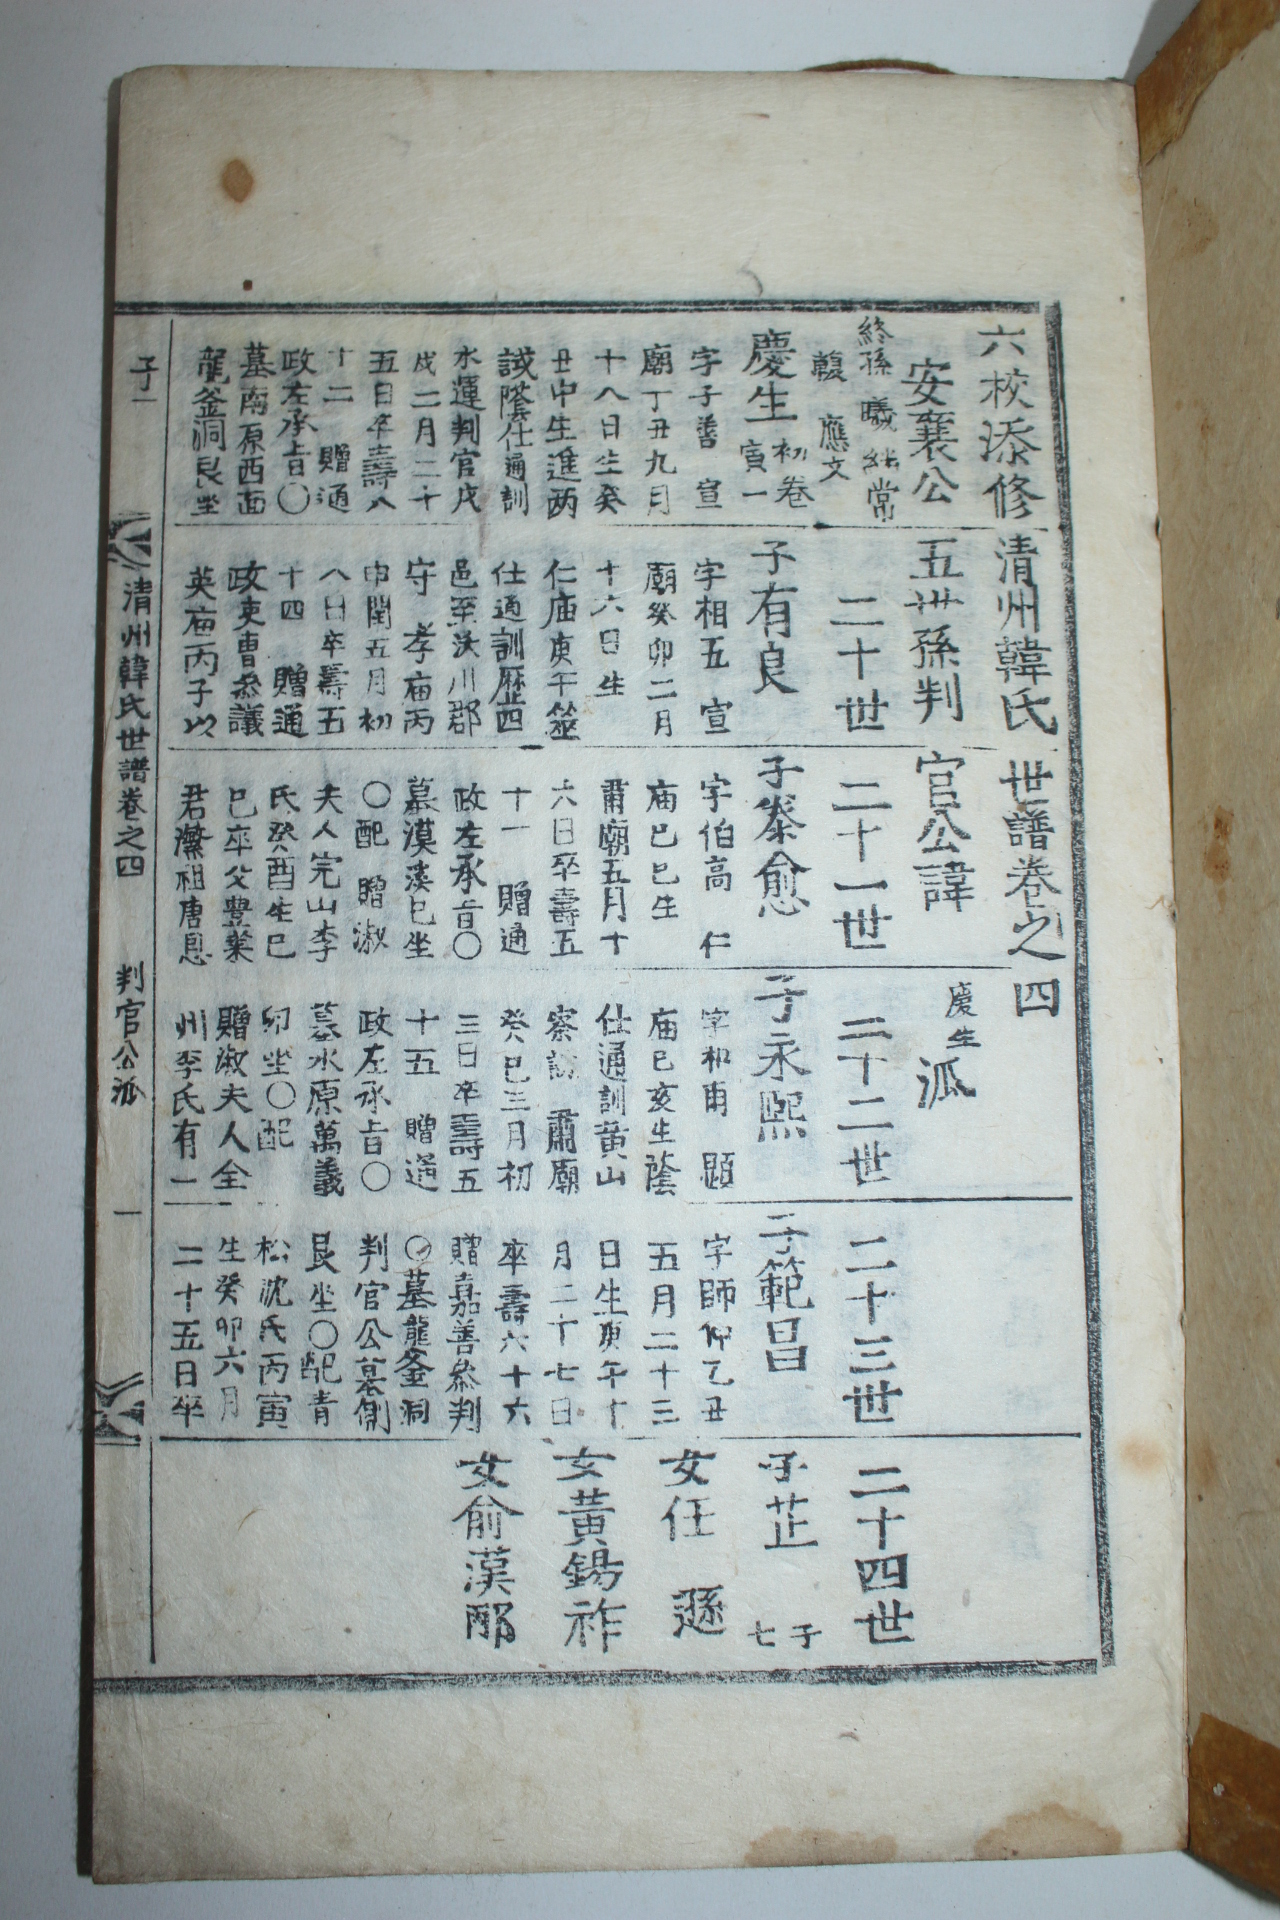 六校添修清州韓氏世譜卷之四
安襄公五世孫判官公諱慶生派
終孫 曦
馥 應文
二十世
二十一世
二十二世
二十三世
二十四世
慶生 初卷寅一
字子善 宣
廟丁丑九月
十八日生癸
丑中生進两
試蔭仕通訓
水運判官戊
戌二月二十
五日卒壽八
十二 贈通
政左承旨〇
墓南原西面
龍釜洞艮坐
子有良
字相五 宣
廟癸卯二月
十六日生
仁庙庚午筮
仕通訓歷四
邑至沃川郡
守 孝庙丙
申閏五月初
八日卒壽五
十四 贈通
政吏曹叅議
英庙丙子以
子泰愈
字伯高 仁
庙己巳生
肅廟五月十
六日卒壽五
十一 贈通
政左承旨〇
墓漠溪巳坐
〇配 贈淑
夫人完山李
氏癸酉生巳
巳卒父豊葉
君瀿祖唐恩
子永熙
字和甫 顯
庙己亥生蔭
仕通訓黄山
察訪 肅廟
癸巳三月初
三日卒壽五
十五 贈通
政左承旨〇
墓水原萬義
卯坐〇配
贈淑夫人全
州李氏有一
子範昌
字師仲乙丑
五月二十三
日生庚午十
月二十七日
卒壽六十六
贈嘉善叅判
〇墓龍釜洞
判官公墓側
艮坐〇配青
松沈氏丙寅
生癸卯六月
二十五日卒
子芷 子七
女任 遜
女黃錫祚
女俞漢邴
子一
清州韓氏世譜卷之四 判官公派 一